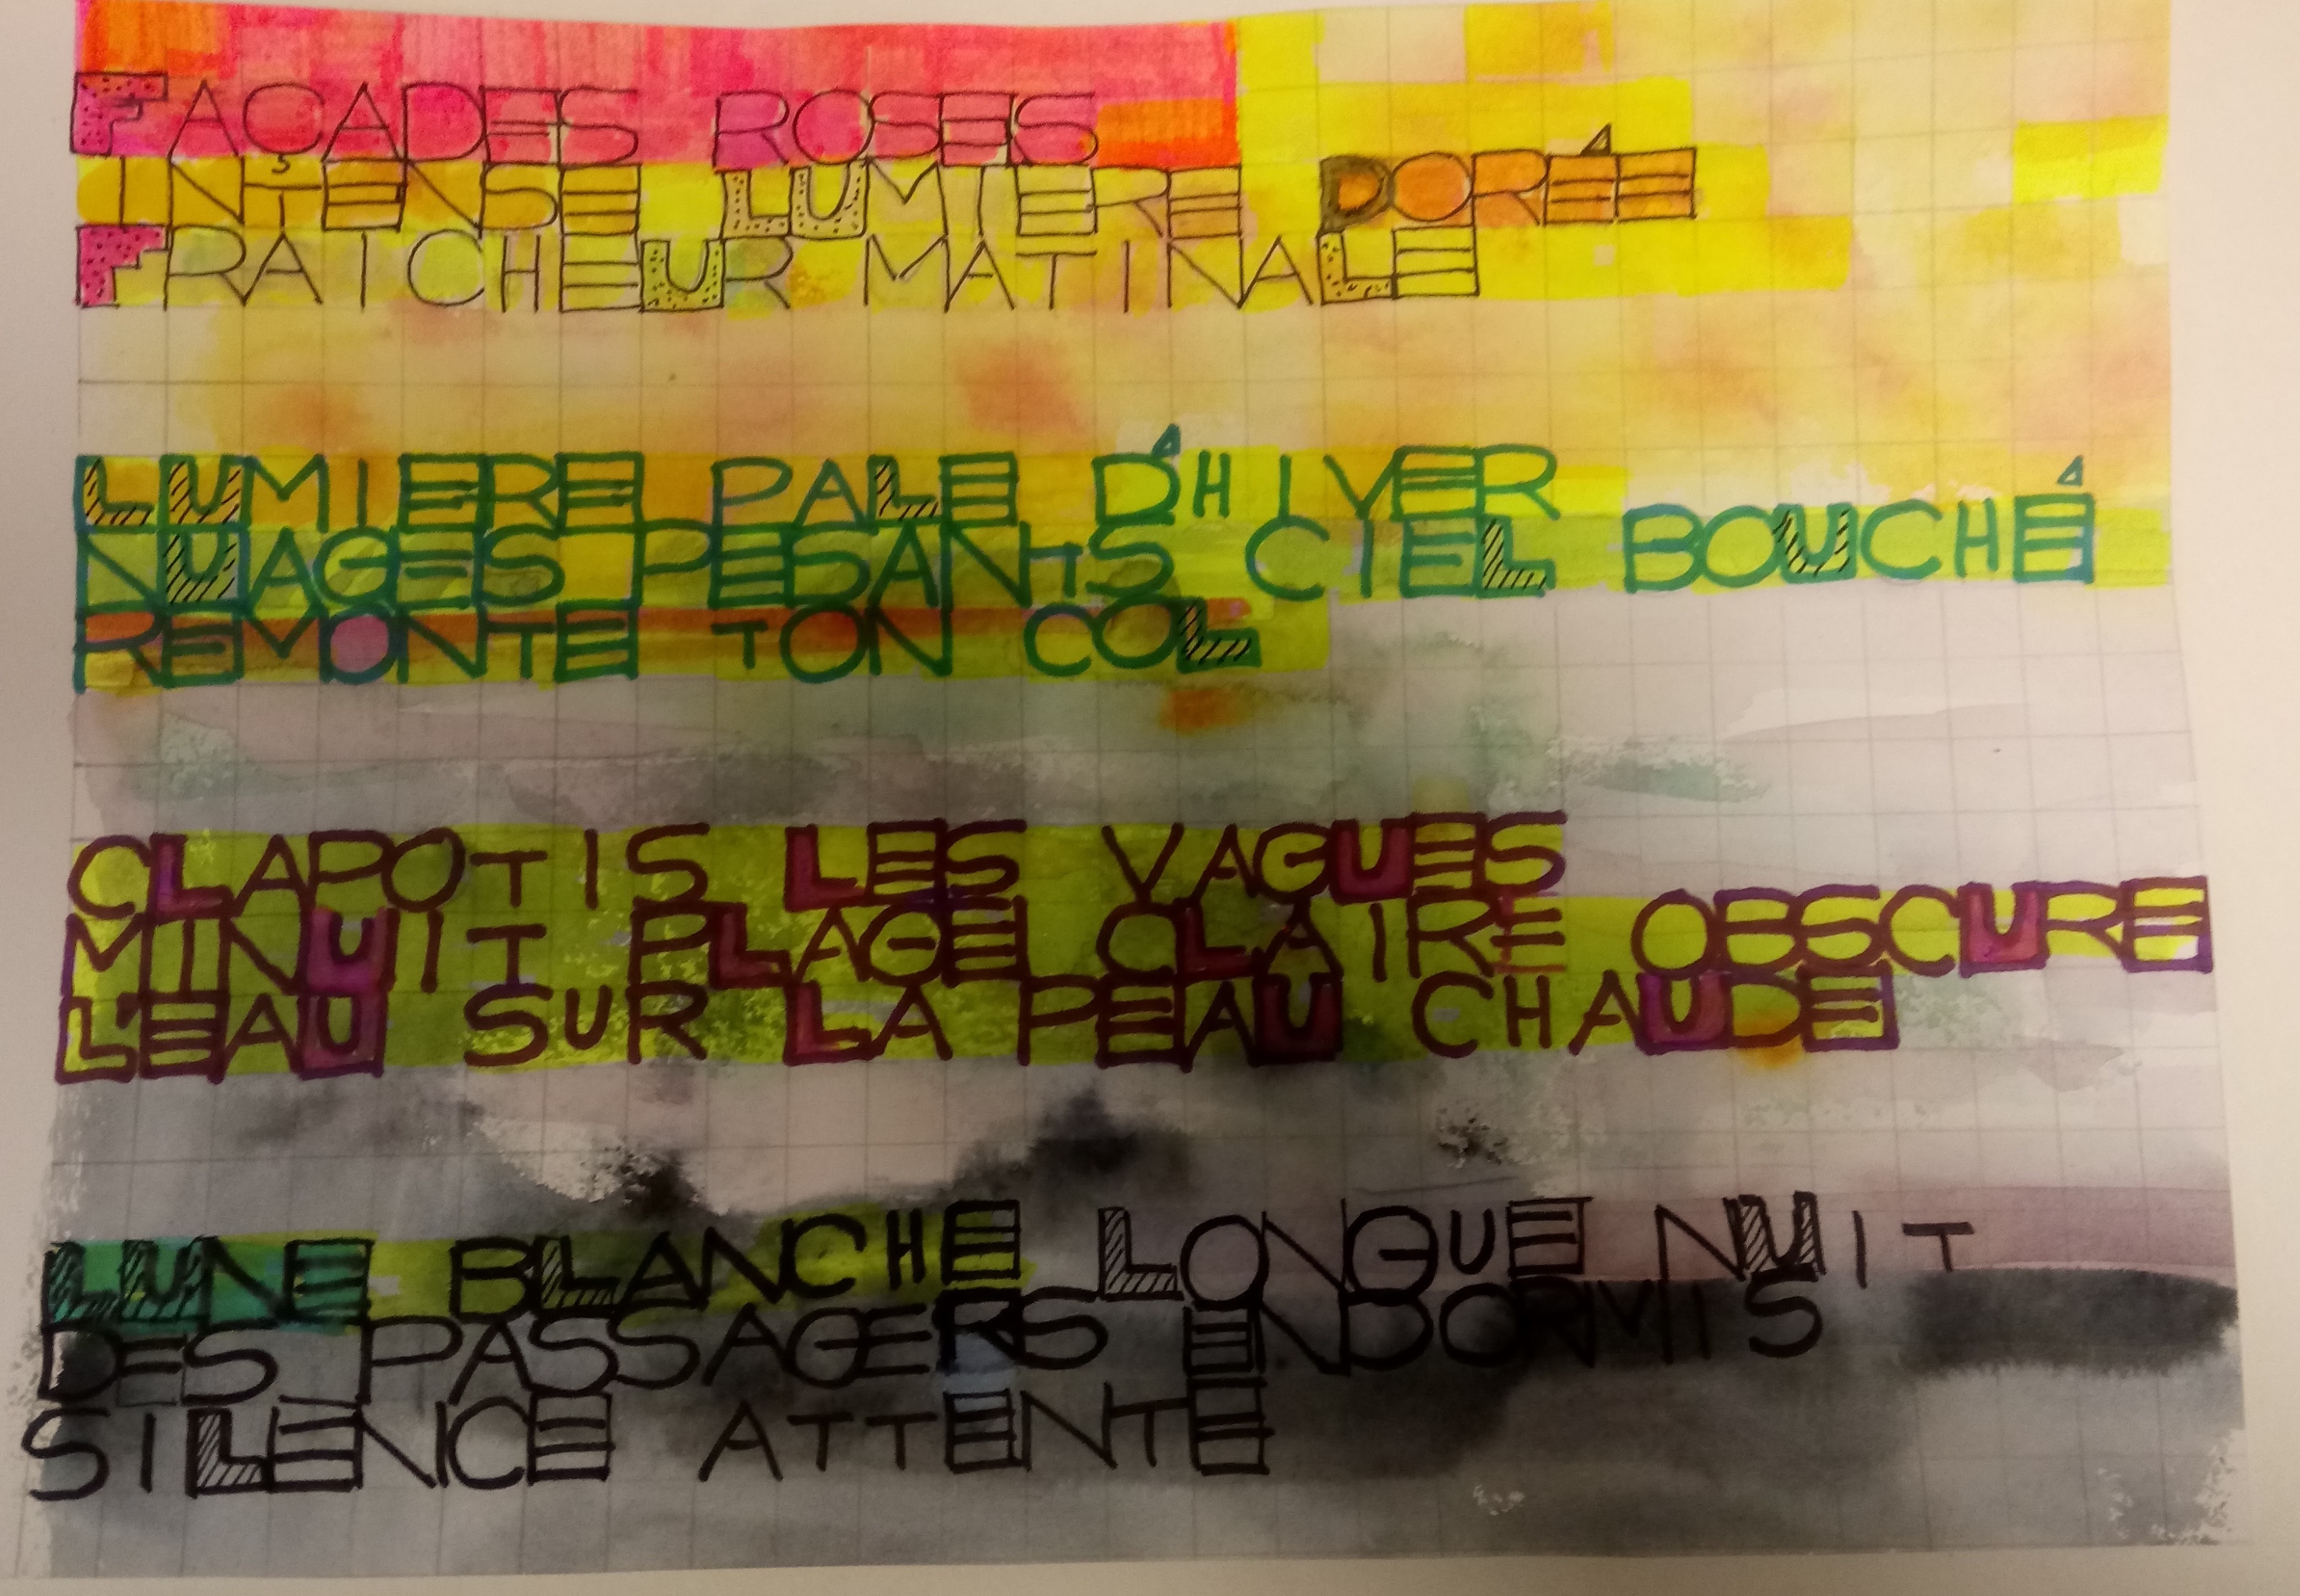 FAÇADES ROSES
INTENSE LUMIERE DORÉE
FRAICHEUR MATINALE
LUMIERE PALE D'HIVER
NUAGES PESANTS CIEL BOUCHÉ
REMONTE TON COL
CLAPOTIS LES VAGUES
MINUIT PLAGE CLAIRE OBSCURE
L'EAU SUR LA PEAU CHAUDE
LUNE BLANCHE LONGUE NUIT
DES PASSAGERS ENDORMIS
SILENCE ATTENTE